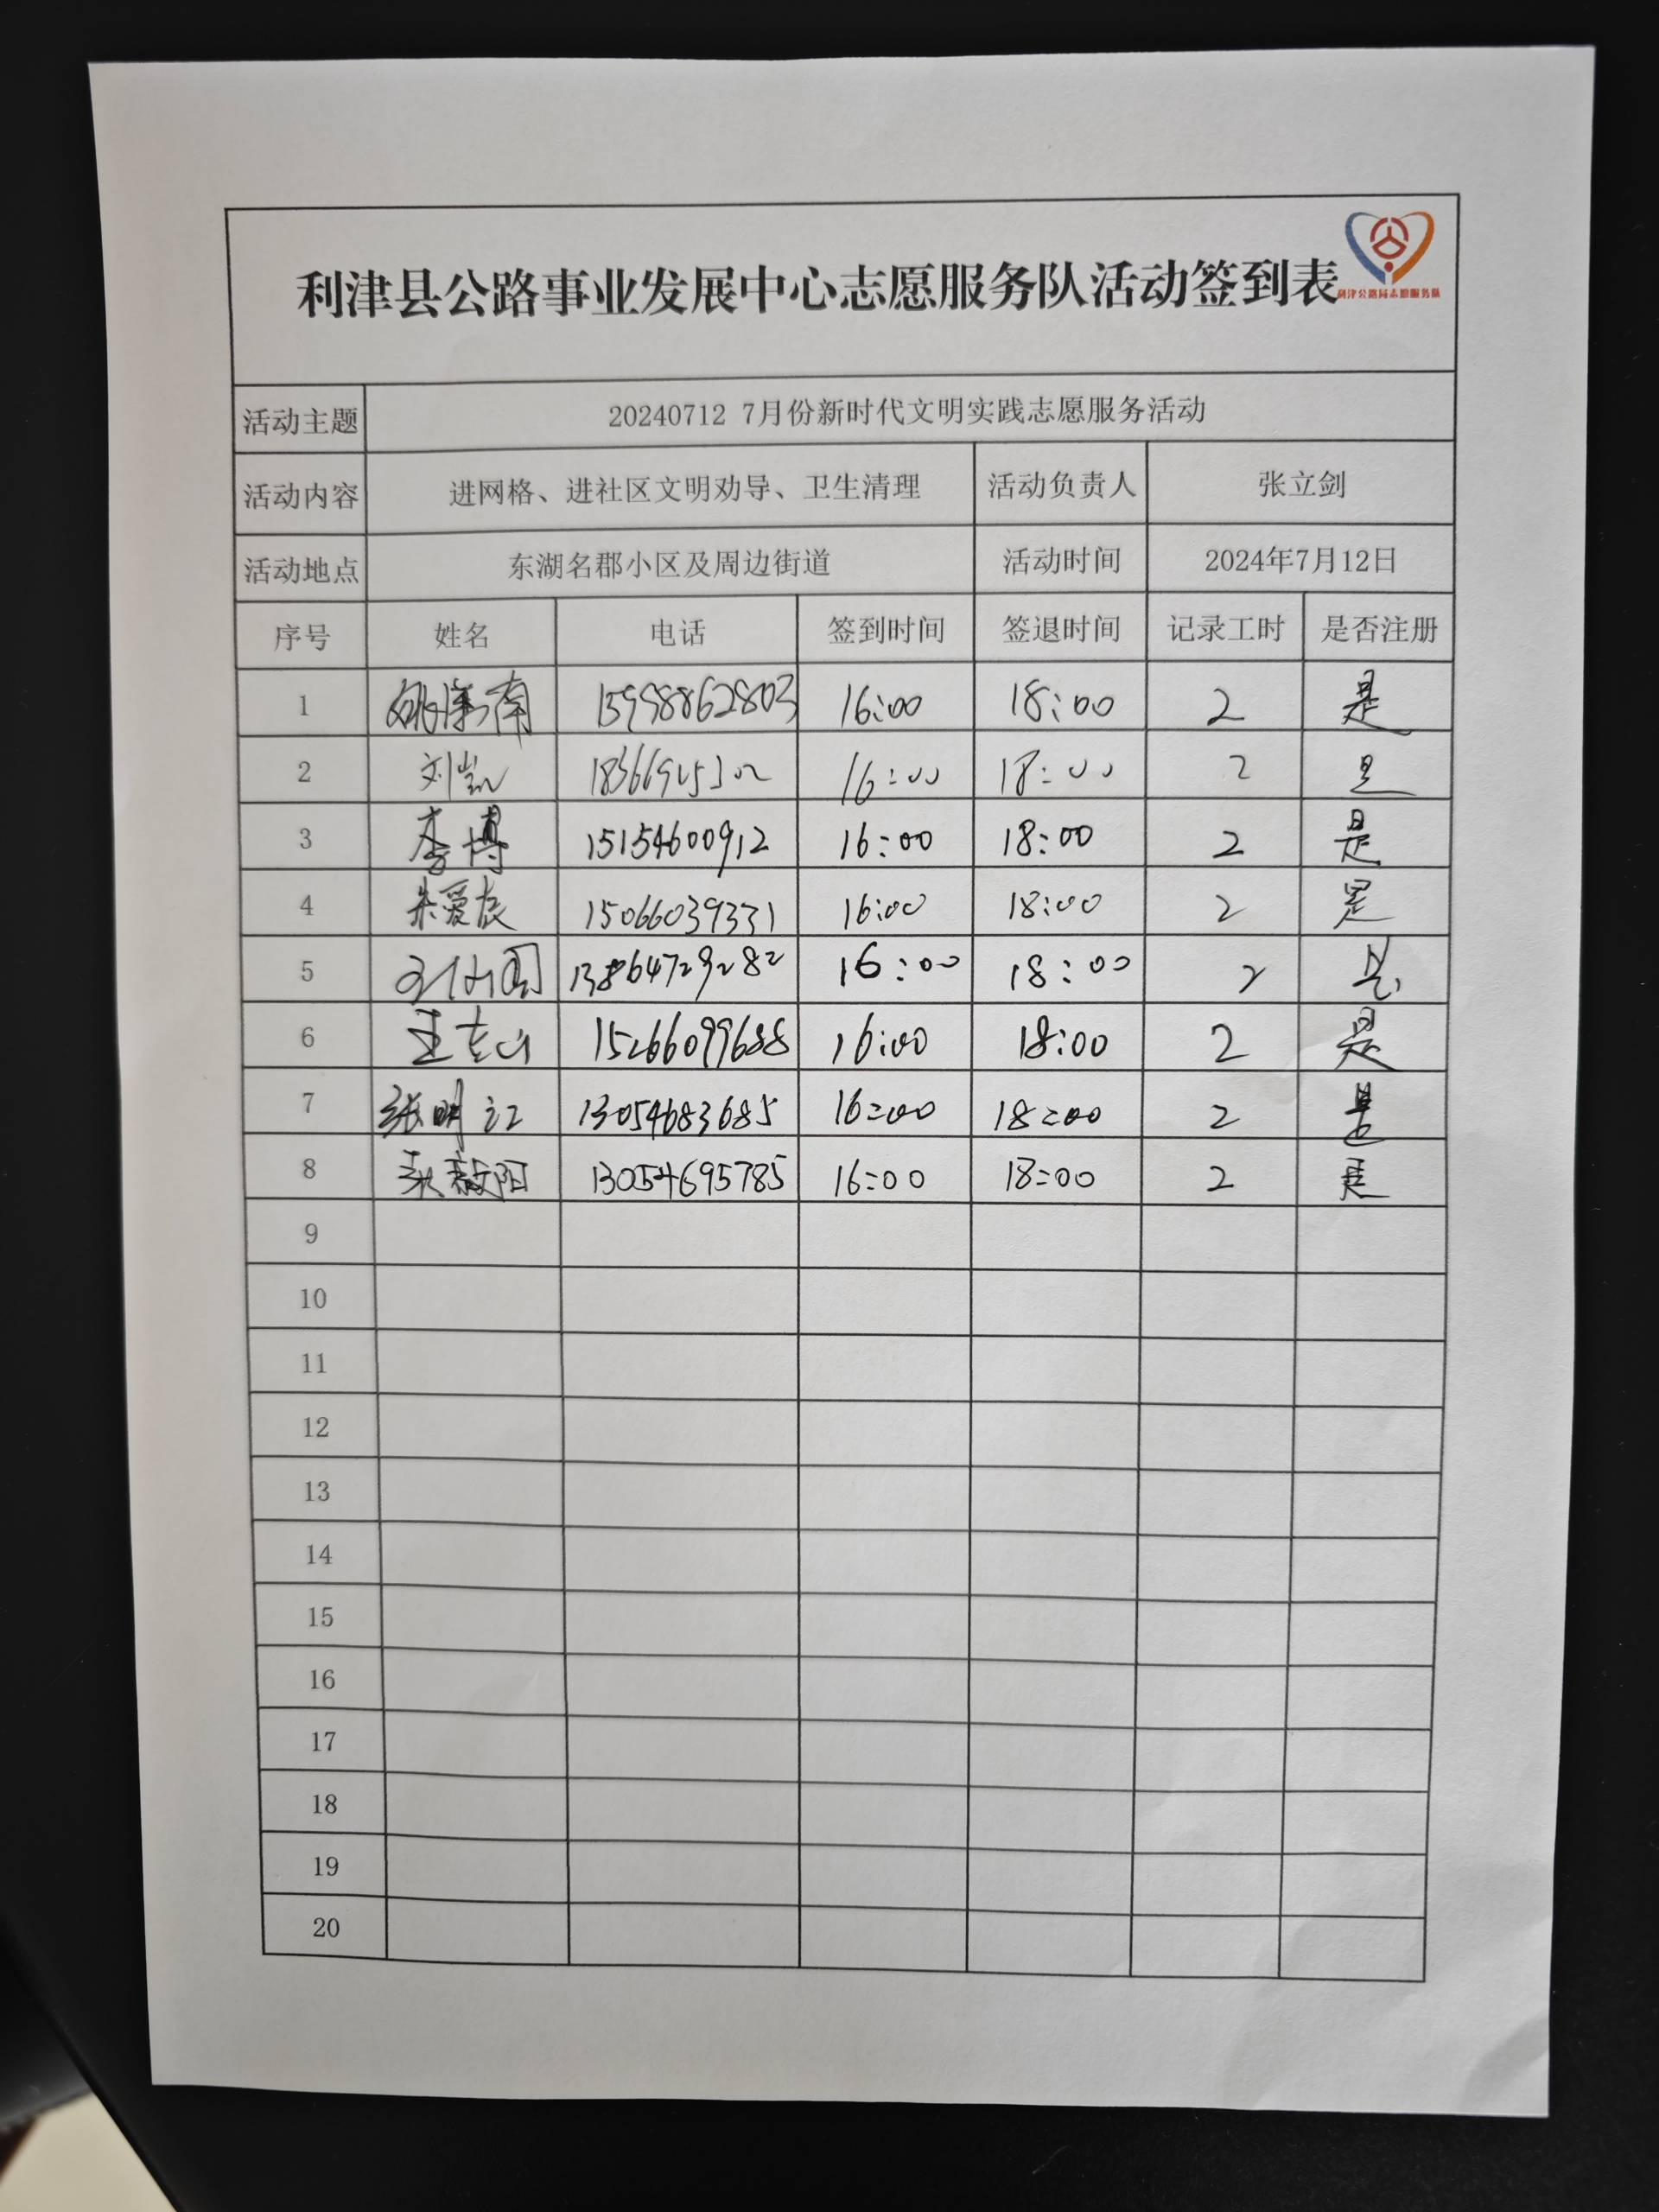 利津县公路事业发展中心志愿服务队活动签到表
利津公路局志愿服务队
活动主题 20240712 7月份新时代文明实践志愿服务活动
活动内容 进网格、进社区文明劝导、卫生清理 活动负责人 张立剑
活动地点 东湖名郡小区及周边街道 活动时间 2024年7月12日
序号 姓名 电话 签到时间 签退时间 记录工时 是否注册
1 15998862803 16:00 18:00 2 是
2 刘凯 16:00 18:00 2 是
3 李博 15154600912 16:00 18:00 2 是
4 朱爱辰 15066039331 16:00 18:00 2 是
5 13864729282 16:00 18:00 2 是
6 王志山 15266099688 16:00 18:00 2 是
7 张明江 13054683685 16:00 18:00 2 是
8 13054695785 16:00 18:00 2 是
9
10
11
12
13
14
15
16
17
18
19
20